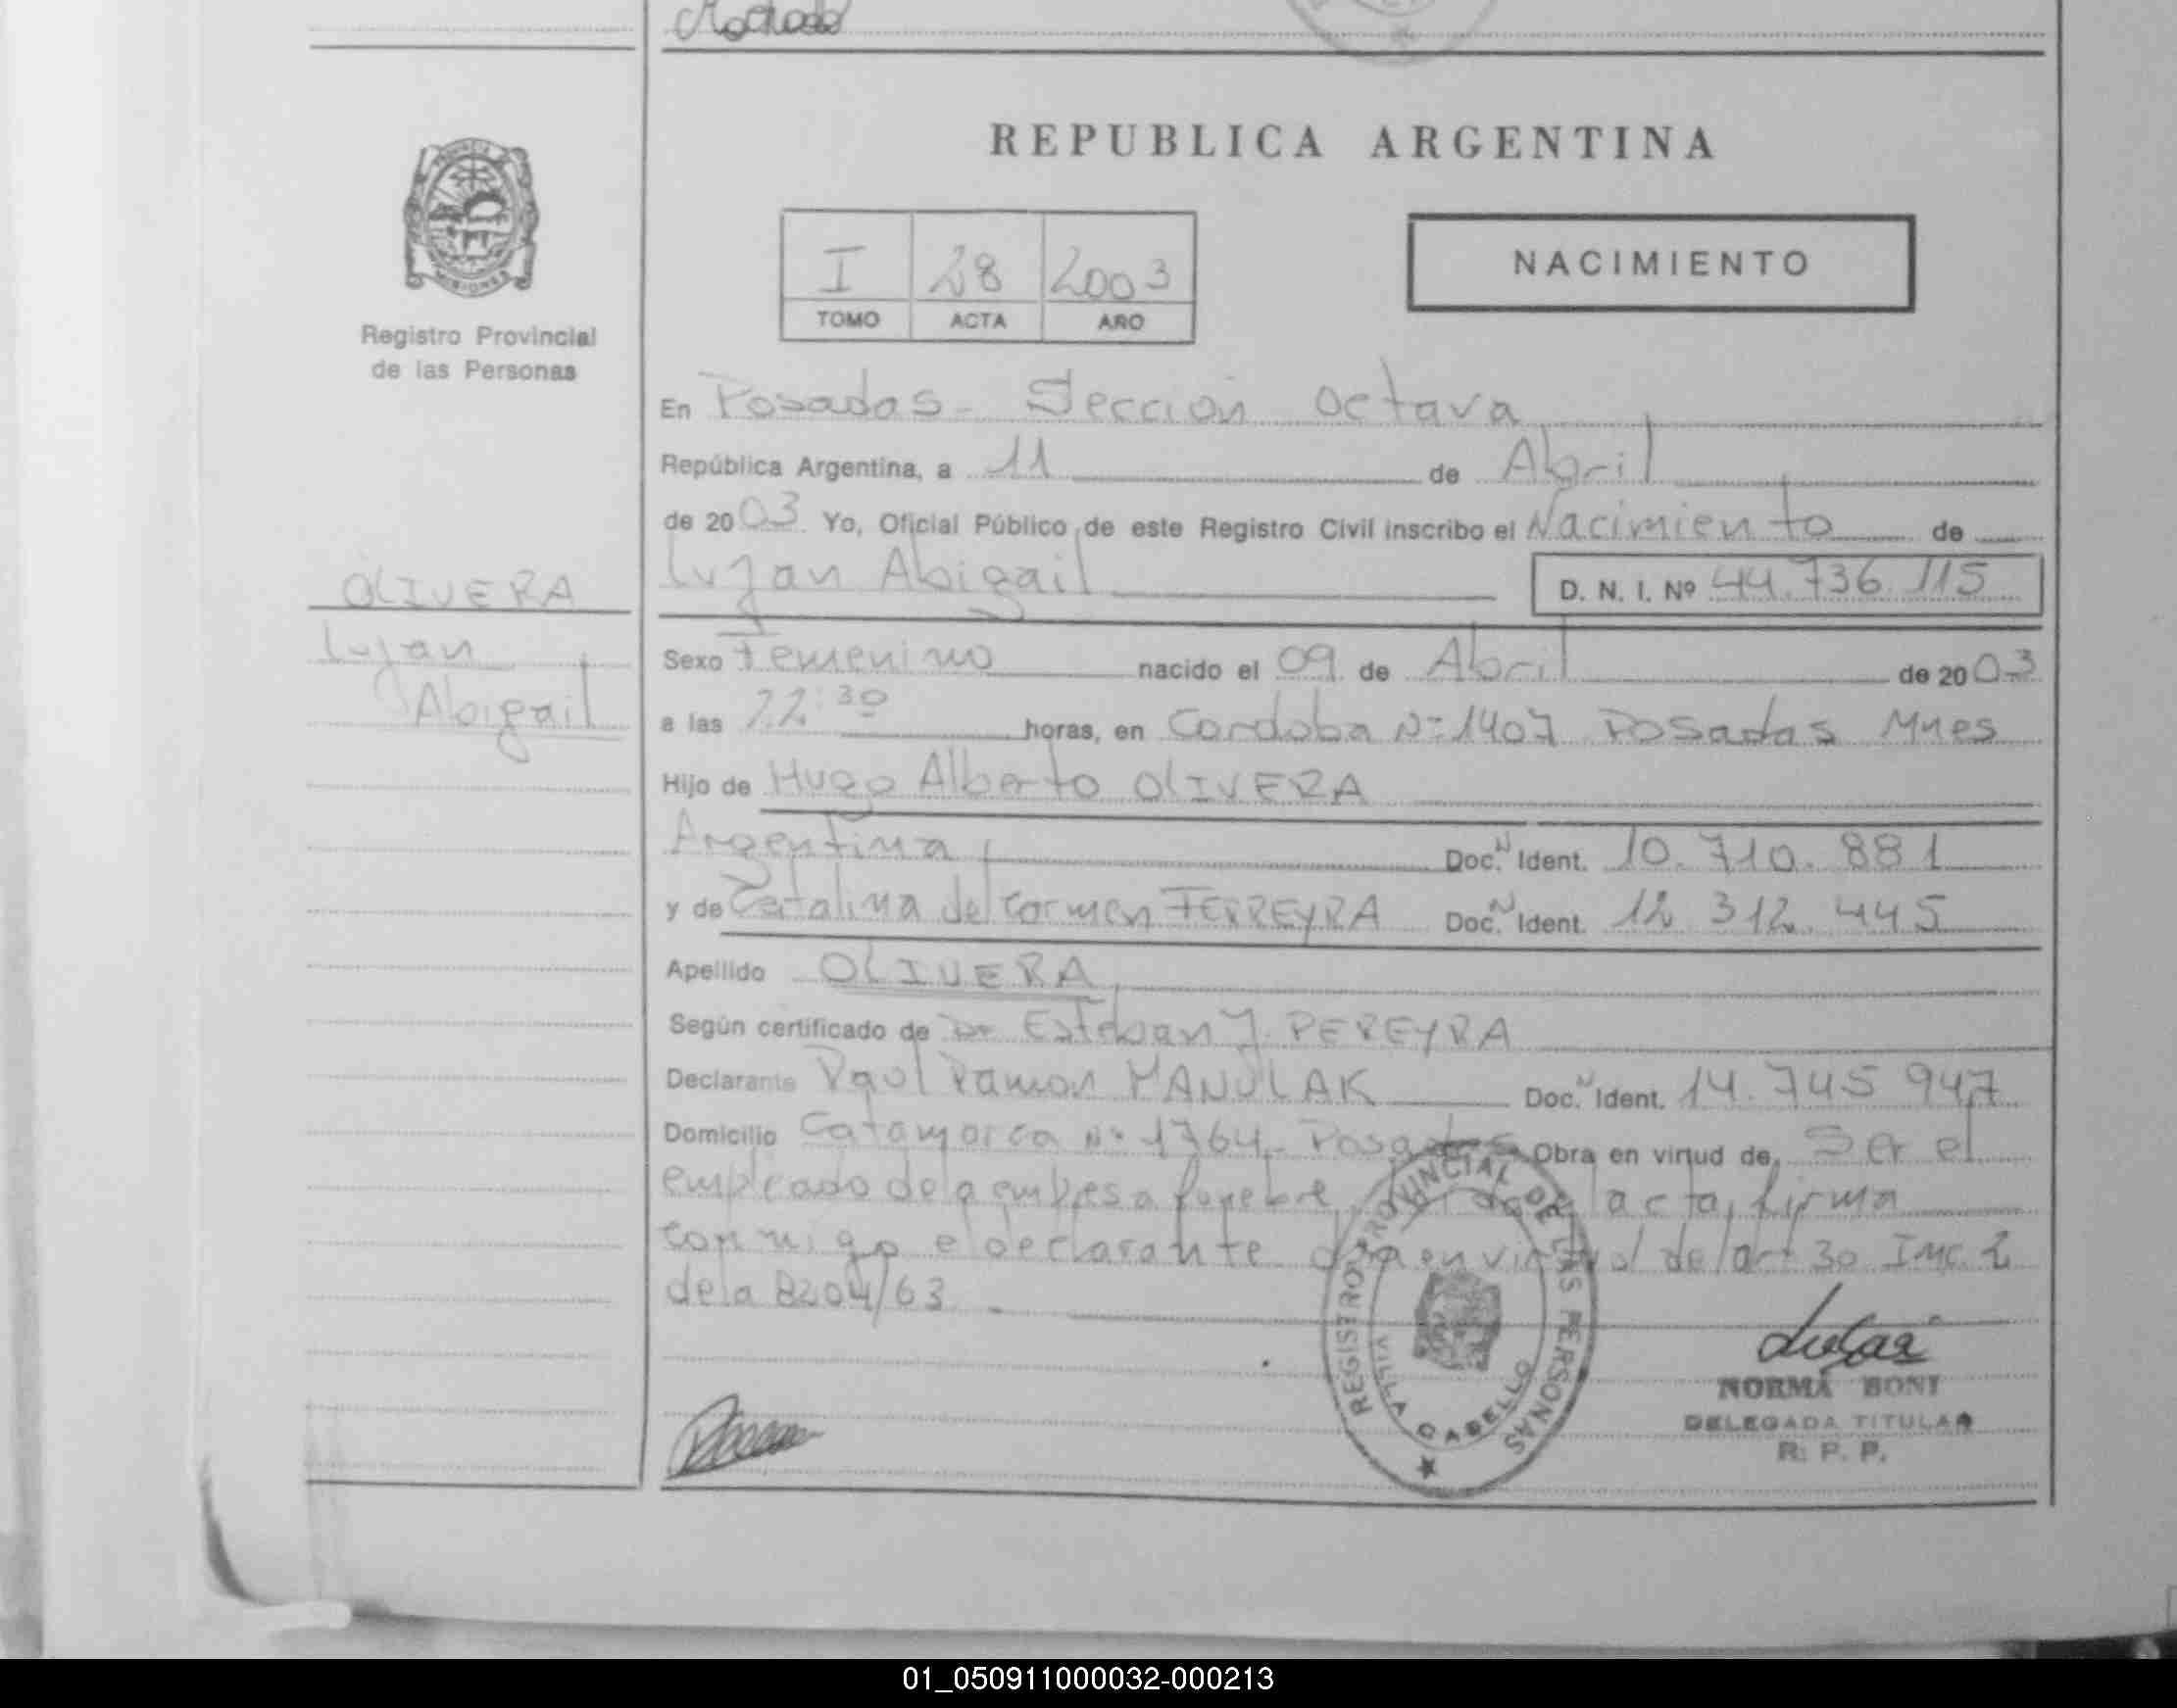 REPUBLICA ARGENTINA
PROVINCIA
MISIONES
Registro Provincial
de las Personas
I 28 2003
TOMO ACTA AÑO
NACIMIENTO
En Posadas - Sección Octava
República Argentina, a 11 de Abril
de 2003 Yo, Oficial Público de este Registro Civil inscribo el Nacimiento de
OLIVERA
Lujan
Abigail
Lujan Abigail D. N. I. Nº 44.736.115
Sexo Femenino nacido el 09 de Abril de 2003
a las 22:30 horas, en Cordoba Nº 1407 Posadas Mnes
Hijo de Hugo Alberto OLIVERA
Argentina Doc. N Ident. 10.710.881
y de Catalina del Carmen FERREYRA Doc. N Ident. 12.312.445
Apellido OLIVERA
Según certificado de Dr Esteban J. PEREYRA
Declarante Raul Ramon MANULAK Doc. N Ident. 14.745.947
Domicilio Catamarca Nº 1764 - Posadas Obra en virtud de Ser el
empleado de la empresa funebre, leida el acta, firma
conmigo el declarante obra en virtud del art 30 Inc. 2
de la 8204/63 -
REGISTRO PROVINCIAL DE LAS PERSONAS
VILLA CABELLO
NORMA BONI
DELEGADA TITULAR
R. P. P.
01_050911000032-000213